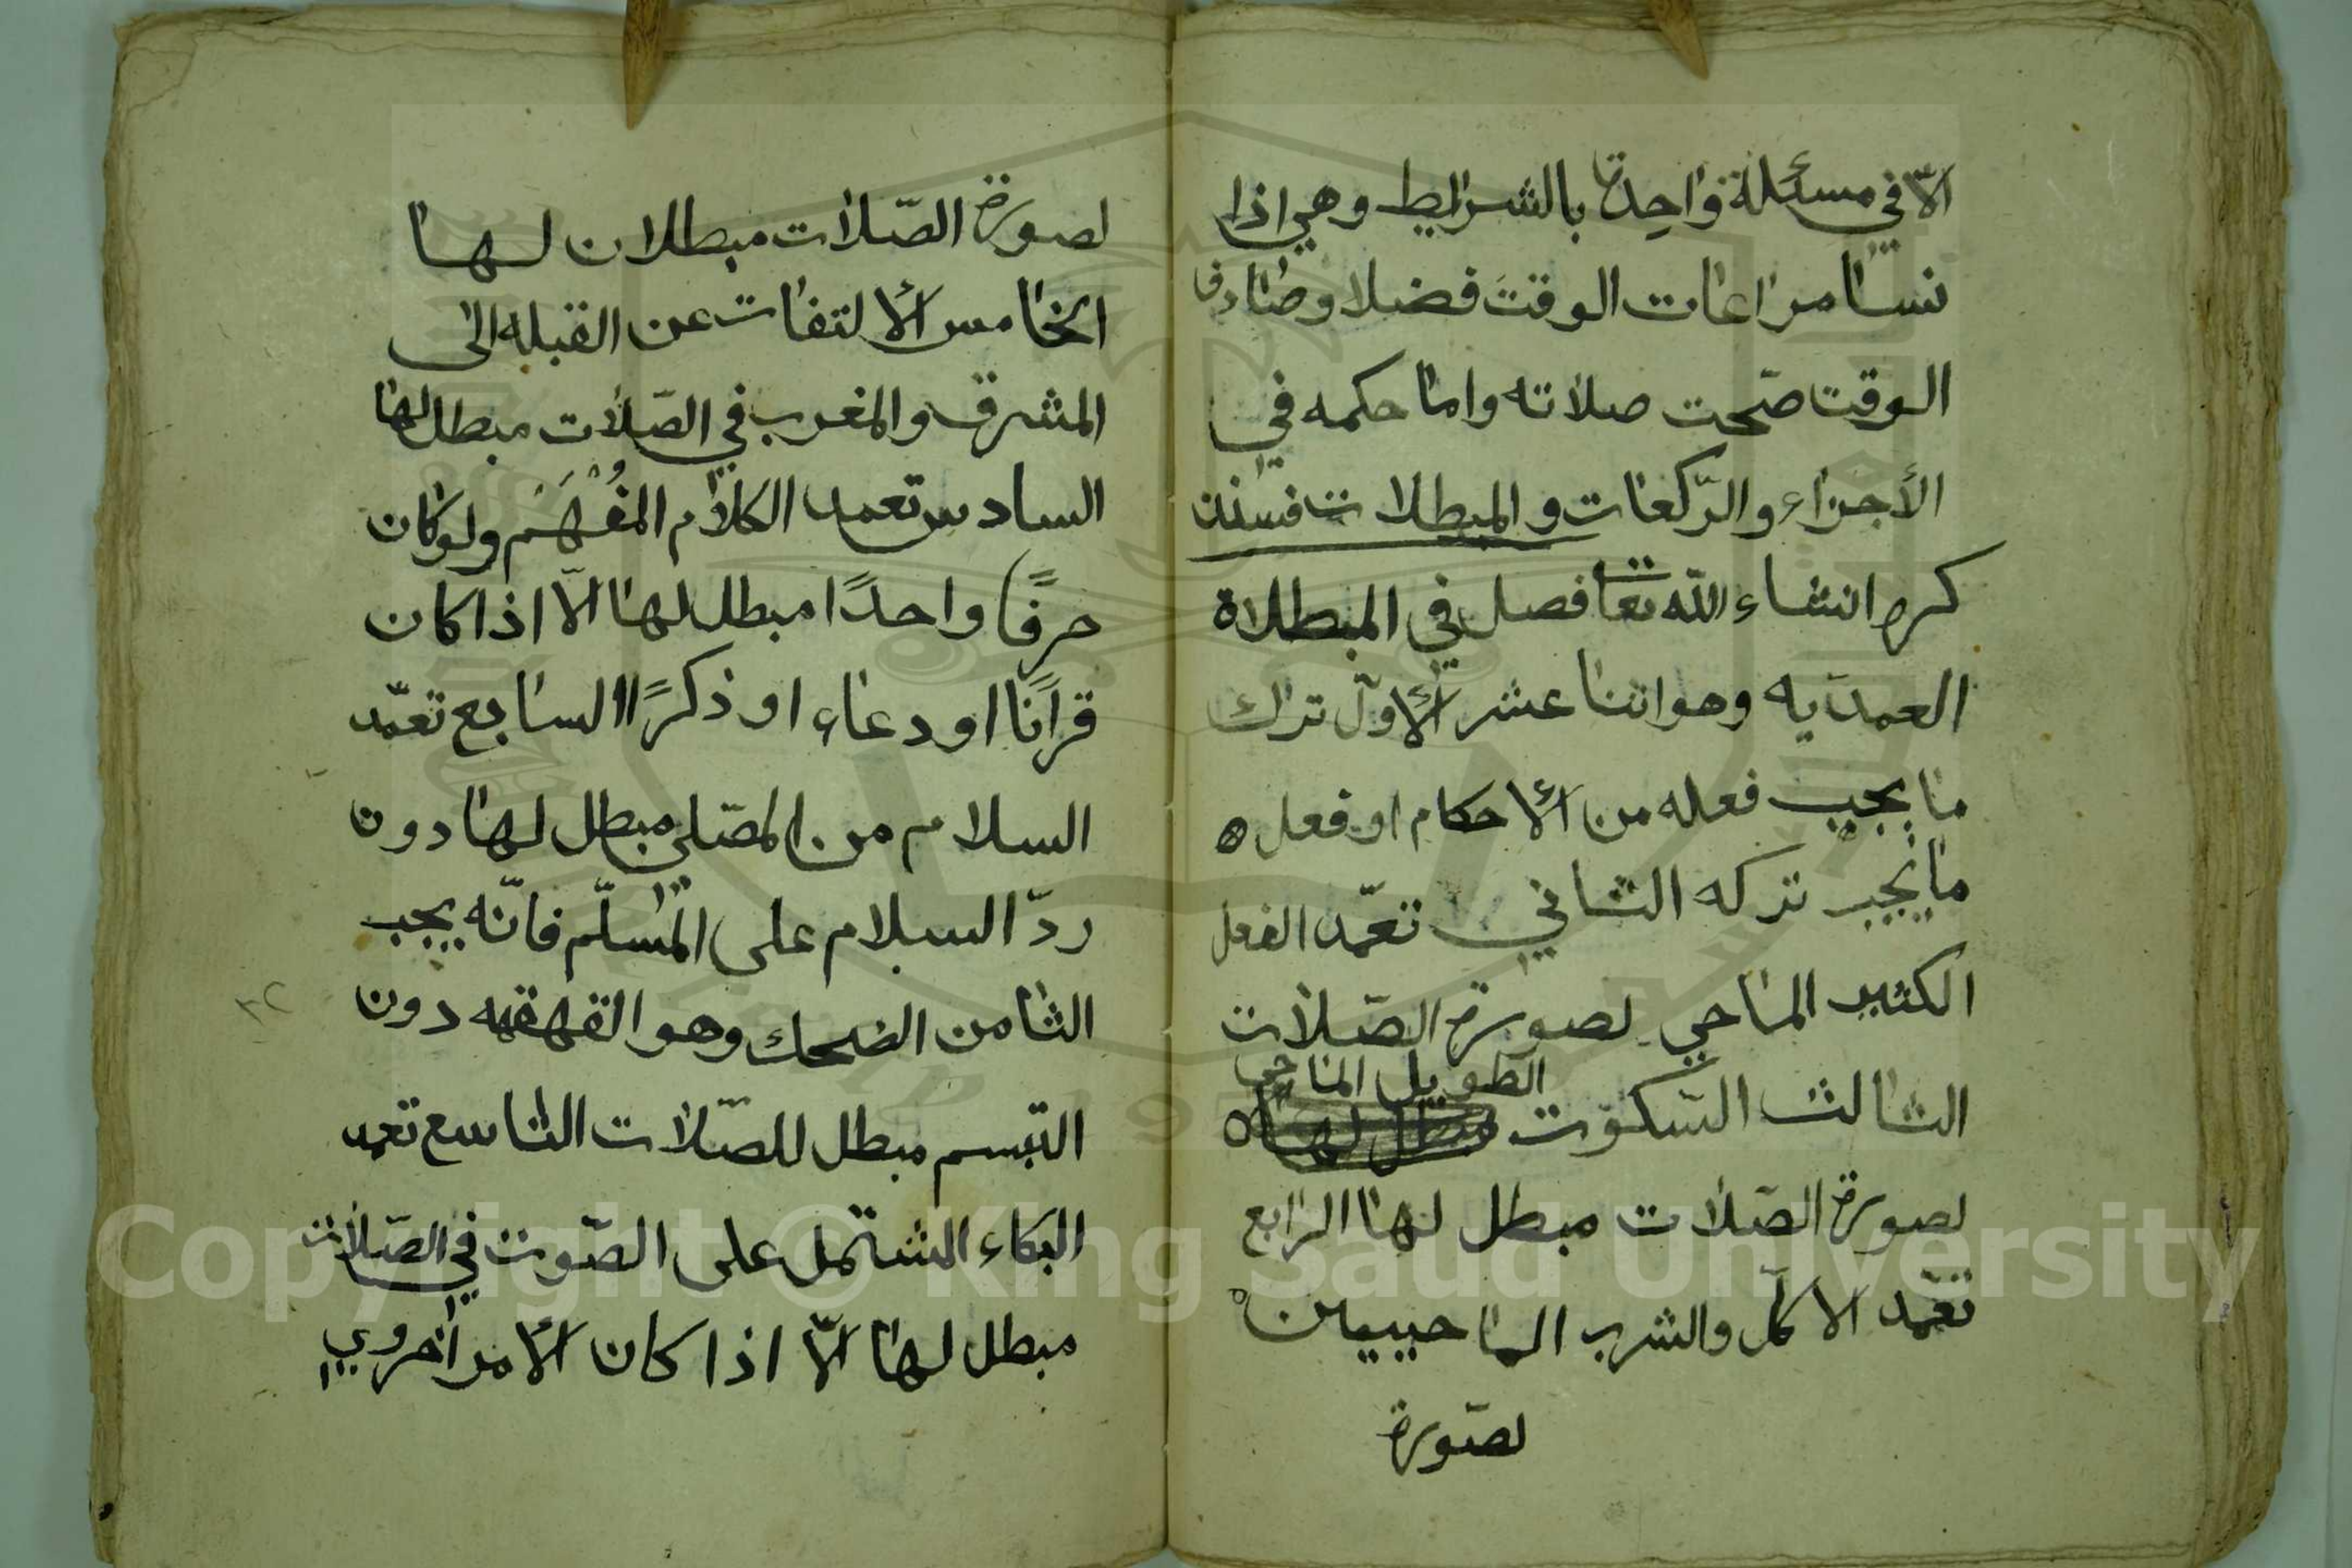 الّا في مسئلة واحدة بالشرايط وهي اذا
نسا مراعات الوقت فضلا وصادف
الوقت صحّت صلاته واما حكمه في
الأجزاء والرّكعات والمبطلات فسنذ
كره انشاء اللّه تعا فصل في المبطلاة
العمديه وهو اثنا عشر الأوّل ترك
ما يجب فعله من الأحكام او فعل ه
ما يجب تركه الثاني تعمّد الفعل
الكثير الماحي لصورة الصّلات
الطويل الماحي
الثالث السّكوت مبطل لها ه
لصورة الصّلات مبطل لها الرابع
تعمّد الاكل والشرب الماحيين ه
لصورة
لصورة الصّلات مبطلان لها
الخامس الألتفات عن القبله الى
المشرق والمغرب في الصّلات مبطل لها
السادس تعمد الكلام المُفْهَم ولو كان
حرفًا واحدًا مبطل لها الّا اذا كان
قرانًا او دعاء او ذكرًا السابع تعمّد
السلام من المصّلي مبطل لها دون
ردّ السلام على المُسلّم فانّه يجب
الثامن الضحك وهو القهقهه دون
التبسم مبطل للصّلات التاسع تعمد
البكاء المشتمل على الصّوت في الصّلات
مبطل لها الّا اذا كان لأمر اخروي
٣٢
Copyright © King Saud University